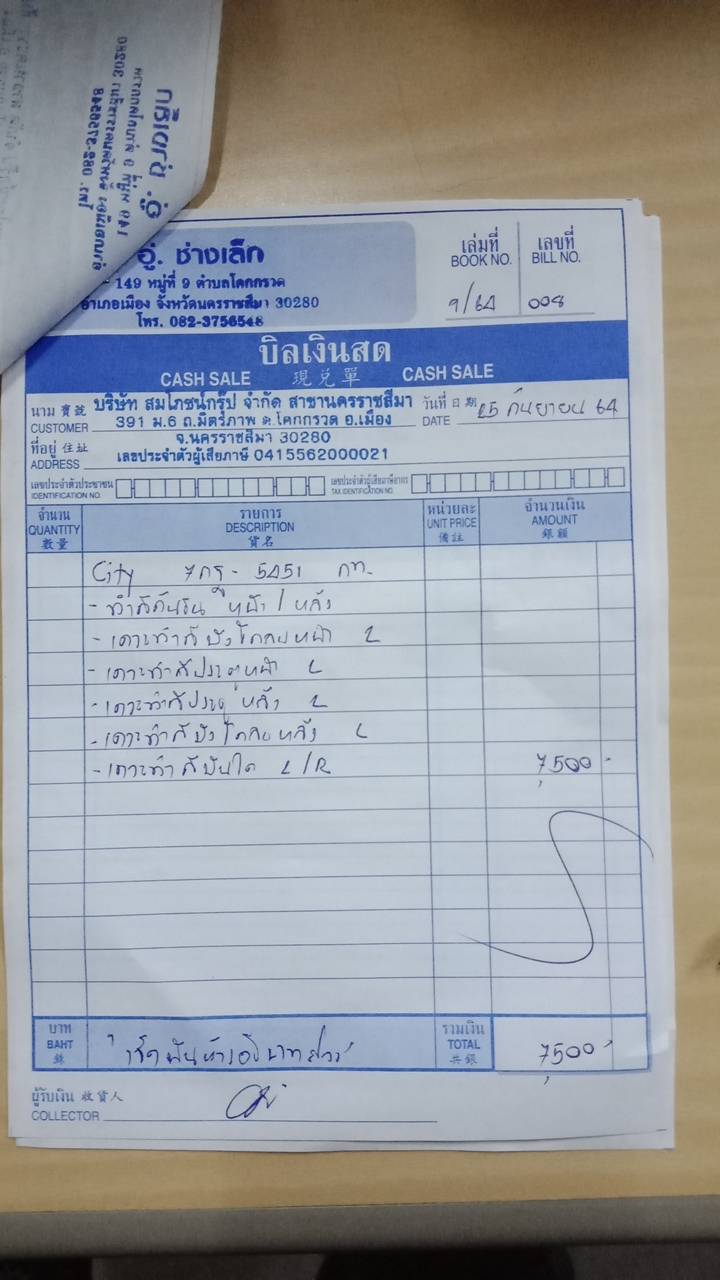 อู่. ช่างเล็ก
149 หมู่ที่ 9 ตำบลโคกกรวด
อำเภอเมือง จังหวัดนครราชสีมา 30280
โทร. 082-3756548
เล่มที่ เลขที่
BOOK NO. BILL NO.
9/64 008
บิลเงินสด
CASH SALE 現兌單 CASH SALE
นาม 寶號 บริษัท สมโภชน์กรุ๊ป จำกัด สาขานครราชสีมา วันที่ 日期 25 กันยายน 64
CUSTOMER 391 ม.6 ถ.มิตรภาพ ต.โคกกรวด อ.เมือง DATE
ที่อยู่ 住址 จ.นครราชสีมา 30280
ADDRESS เลขประจำตัวผู้เสียภาษี 0415562000021
เลขประจำตัวประชาชน เลขประจำตัวผู้เสียภาษีอากร
IDENTIFICATION NO. TAX IDENTIFICATION NO.
จำนวน รายการ หน่วยละ จำนวนเงิน
QUANTITY DESCRIPTION UNIT PRICE AMOUNT
數量 貨名 備註 銀額
City 7กฐ - 5451 กท.
- ทำสีกันชน หน้า / หลัง
- เคาะทำสีบังโคลนหน้า L
- เคาะทำสีประตูหน้า L
- เคาะทำสีประตูหลัง L
- เคาะทำสีบังโคลนหลัง L
- เคาะทำสีบันได L/R 7,500 -
บาท รวมเงิน
BAHT เจ็ดพันห้าร้อยบาทถ้วน TOTAL 7,500 -
銖 共銀
ผู้รับเงิน 收貨人
COLLECTOR